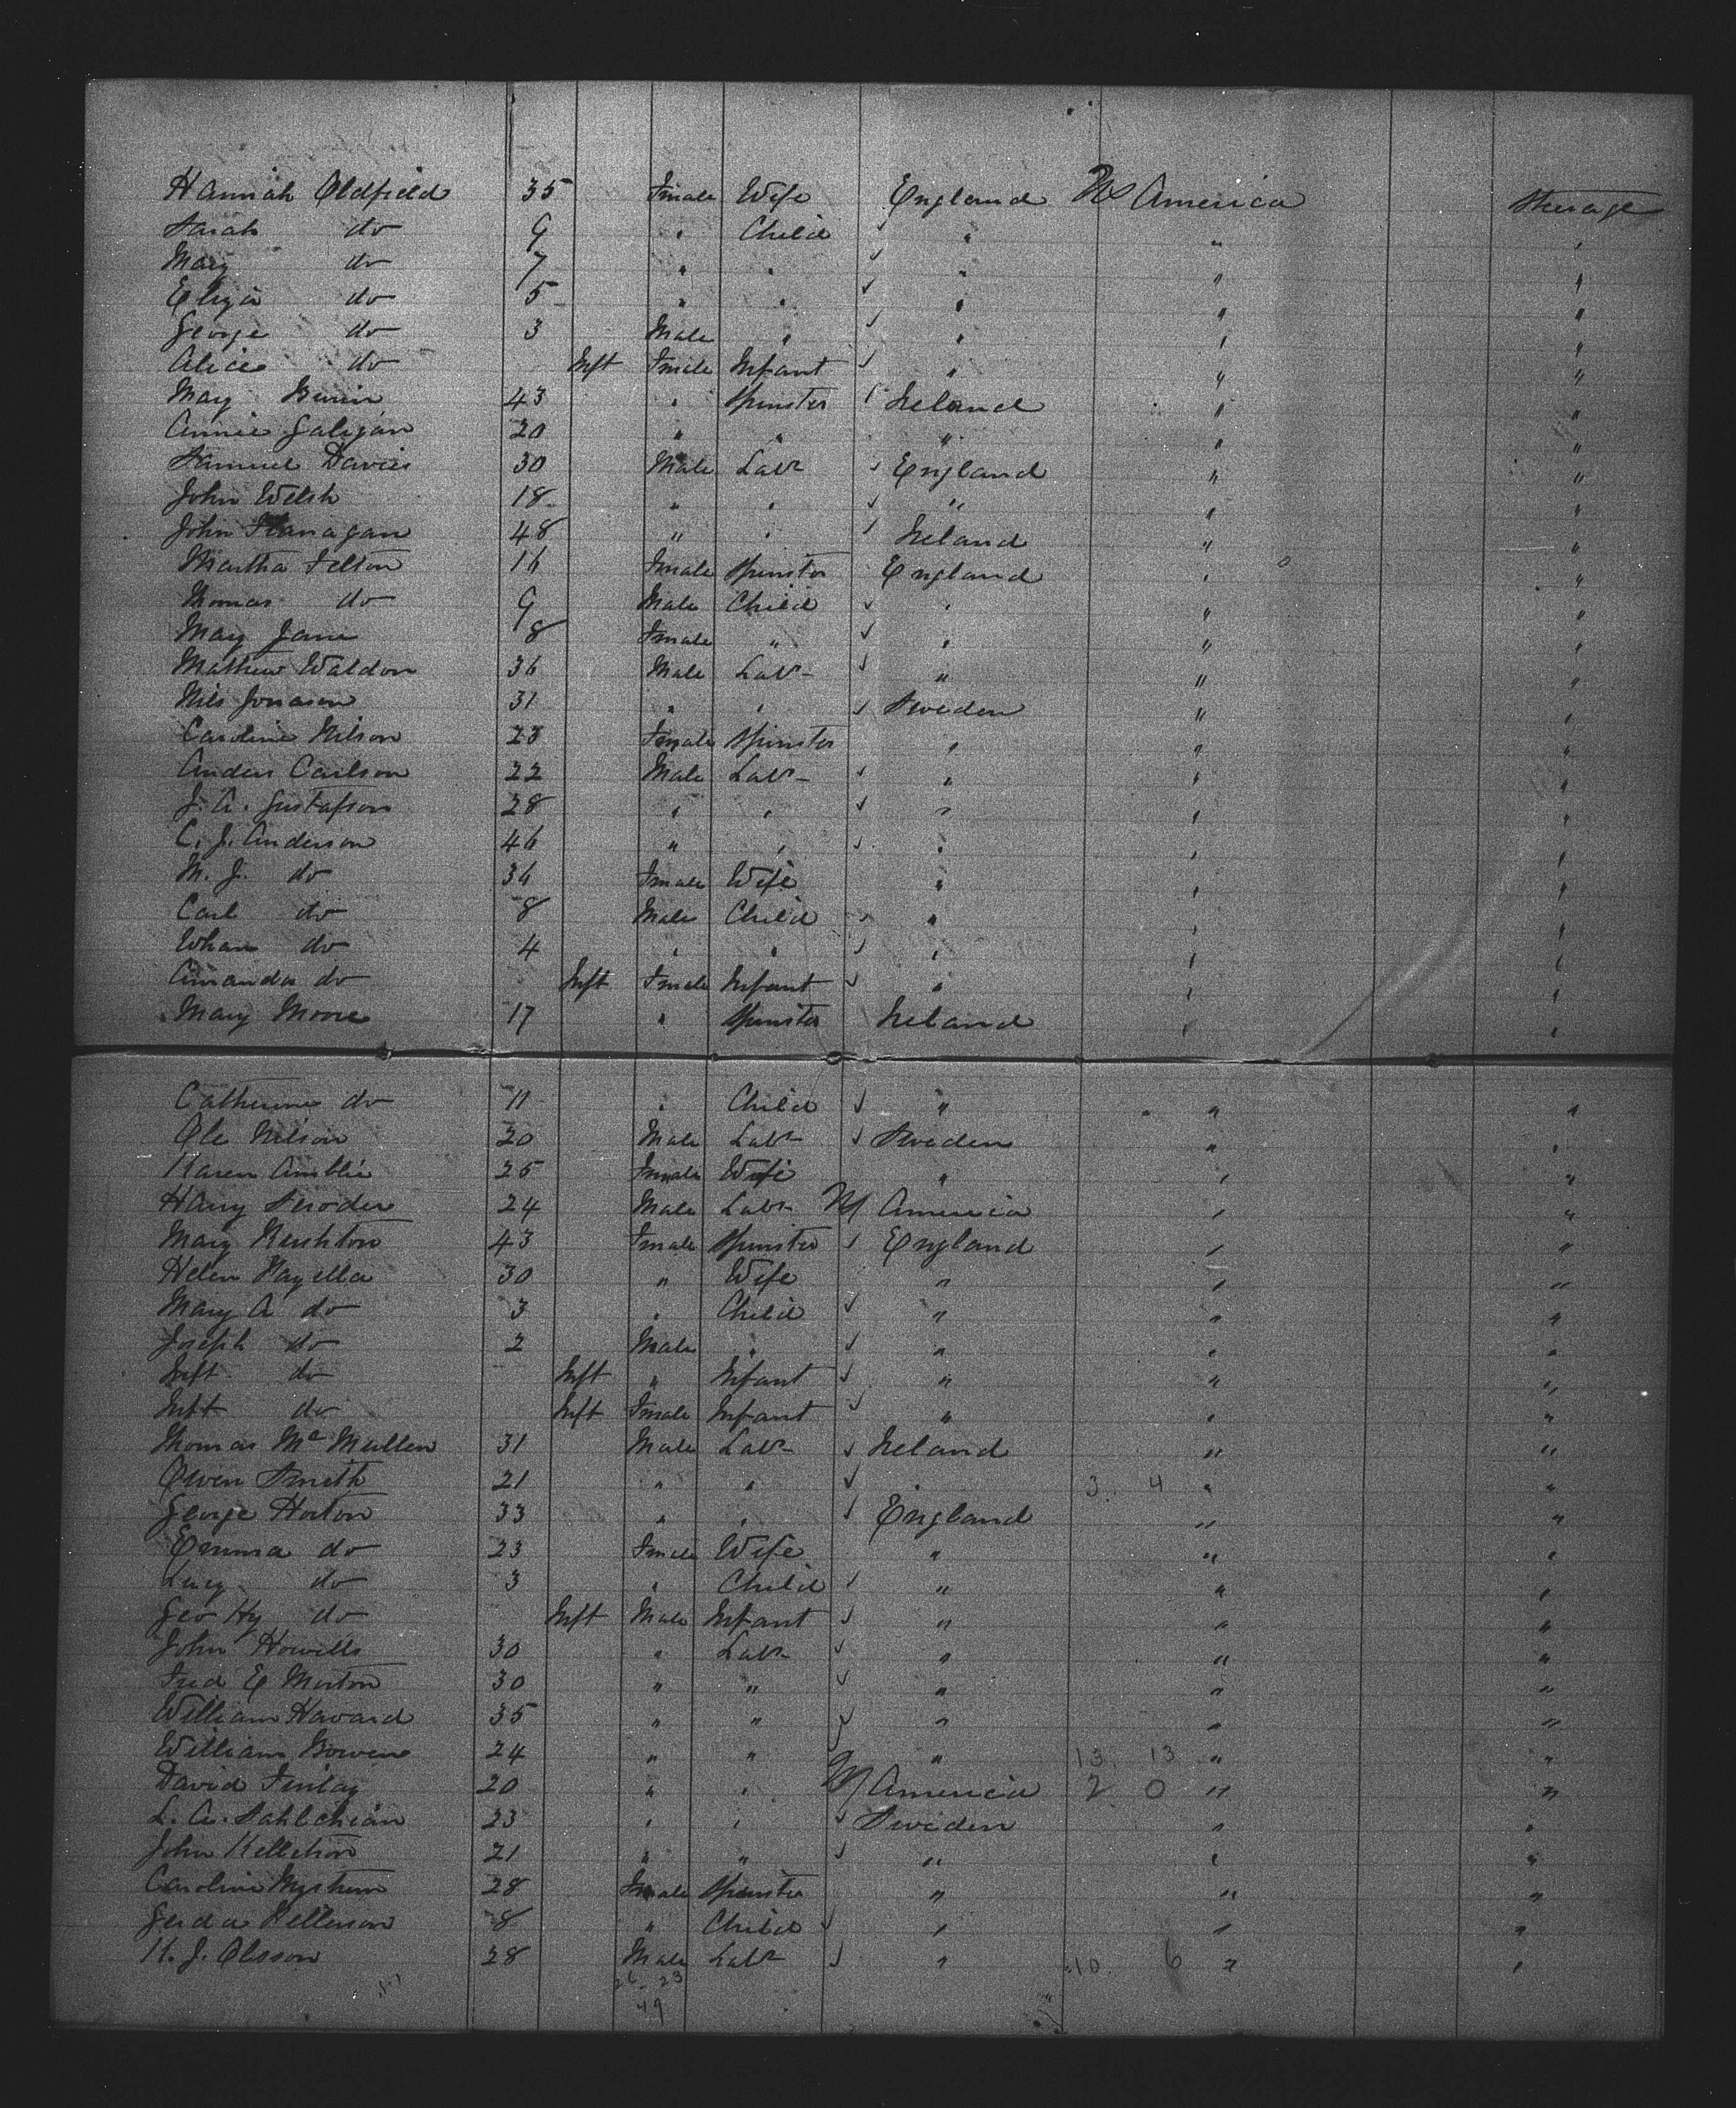 Hannah Oldfield 35 Female Wife England U S America Steerage
Sarah do 9 " Child " " "
Mary do 7 " " " " "
Eliza do 5 " " " " "
George do 3 Male " " " "
Alice do Inft Female Infant " " "
Mary 43 " Spinster Ireland " "
Annie Galigan 20 " " " " "
Samuel Davies 30 Male Labr England " "
John Welsh 18 " " " " "
John Flanagan 48 " " Ireland " "
Martha Felton 16 Female Spinster England " "
Thomas do 9 Male Child " " "
Mary Jane 8 Female " " " "
Mathew Waldon 36 Male Labr " " "
Nils Jonason 31 " " Sweden " "
Caroline Nilson 23 Female Spinster " " "
Anders Carlson 22 Male Labr " " "
J. A. Gustafson 28 " " " " "
C. J. Anderson 46 " " " " "
M. J. do 36 Female Wife " " "
Carl do 8 Male Child " " "
Johan do 4 " " " " "
Amanda do Inft Female Infant " " "
Mary Moore 17 " Spinster Ireland " "
Catherine do 11 " Child " " "
Ole Nilson 20 Male Labr Sweden " "
Karen 25 Female Wife " " "
Harry 24 Male Labr America " "
Mary Rushton 43 Female Spinster England " "
Helen 30 " Wife " " "
Mary A do 3 " Child " " "
Joseph do 2 Male " " " "
Inft do Inft " Infant " " "
Inft do Inft Female Infant " " "
Thomas Mc Mullen 31 Male Labr Ireland " "
Owen Smith 21 " " 3. 4 " "
George Horton 33 " " England " "
Emma do 23 Female Wife " " "
Lucy do 3 " Child " " "
Geo Hy do Inft Male Infant " " "
John Howells 30 " Labr " " "
Fred E Morton 30 " " " " "
William Havard 35 " " " " "
William Bowen 24 " " " 13. 13 " "
David Finlay 20 " " America 2 0 " "
L. A. 23 " " Sweden " "
John 21 " " " " "
Caroline 28 Female Spinster " " "
Gerda Petterson 8 " Child " " "
K. J. Olsson 28 Male Labr " 10. 6 " "
26-23
49